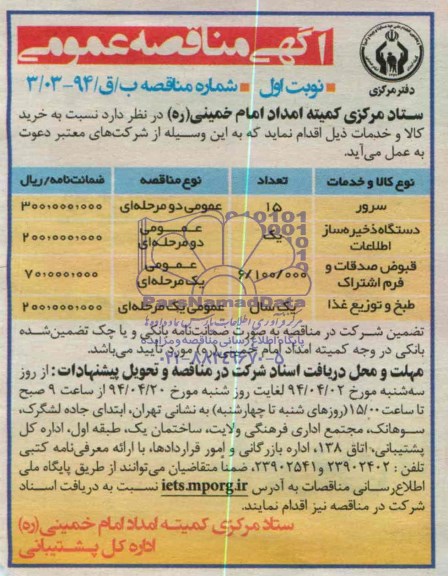 آگهی مناقصه عمومی
دفتر مرکزی
نوبت اول ▪ شماره مناقصه ب/ق/۹۴-۳/۰۳
ستاد مرکزی کمیته امداد امام خمینی(ره) در نظر دارد نسبت به خرید
کالا و خدمات ذیل اقدام نماید که به این وسیله از شرکت‌های معتبر دعوت
به عمل می‌آید.
نوع کالا و خدمات تعداد نوع مناقصه ضمانت‌نامه/ریال
سرور ۱۵ عمومی دو مرحله‌ای ۳۰۰،۰۰۰،۰۰۰
دستگاه ذخیره‌ساز اطلاعات یک عمومی دو مرحله‌ای ۲۰۰،۰۰۰،۰۰۰
قبوض صدقات و فرم اشتراک ۶/۱۰۰/۰۰۰ عمومی یک مرحله‌ای ۷۰،۰۰۰،۰۰۰
طبخ و توزیع غذا یکسال عمومی یک مرحله‌ای ۲۰۰،۰۰۰،۰۰۰
ParsNamadData
پایگاه اطلاع رسانی مناقصه و مزایده
۰۲۱-۸۸۳۴۹۶۷۰-۵
تضمین شرکت در مناقصه به صورت ضمانت‌نامه بانکی و یا چک تضمین‌شده
بانکی در وجه کمیته امداد امام خمینی(ره) مورد تأیید می‌باشد.
مهلت و محل دریافت اسناد شرکت در مناقصه و تحویل پیشنهادات: از روز
سه‌شنبه مورخ ۹۴/۰۴/۰۲ لغایت روز شنبه مورخ ۹۴/۰۴/۲۰ از ساعت ۹ صبح
تا ساعت ۱۵/۰۰ (روزهای شنبه تا چهارشنبه) به نشانی تهران، ابتدای جاده لشگرک،
سوهانک، مجتمع اداری فرهنگی ولایت، ساختمان یک، طبقه اول، اداره کل
پشتیبانی، اتاق ۱۳۸، اداره بازرگانی و امور قراردادها، با ارائه معرفی‌نامه کتبی
تلفن: ۲۳۹۰۲۴۰۲ و ۲۳۹۰۲۵۴۱، ضمنا متقاضیان می‌توانند از طریق پایگاه ملی
اطلاع‌رسانی مناقصات به آدرس iets.mporg.ir نسبت به دریافت اسناد
شرکت در مناقصه نیز اقدام نمایند.
ستاد مرکزی کمیته امداد امام خمینی(ره)
اداره کل پشتیبانی